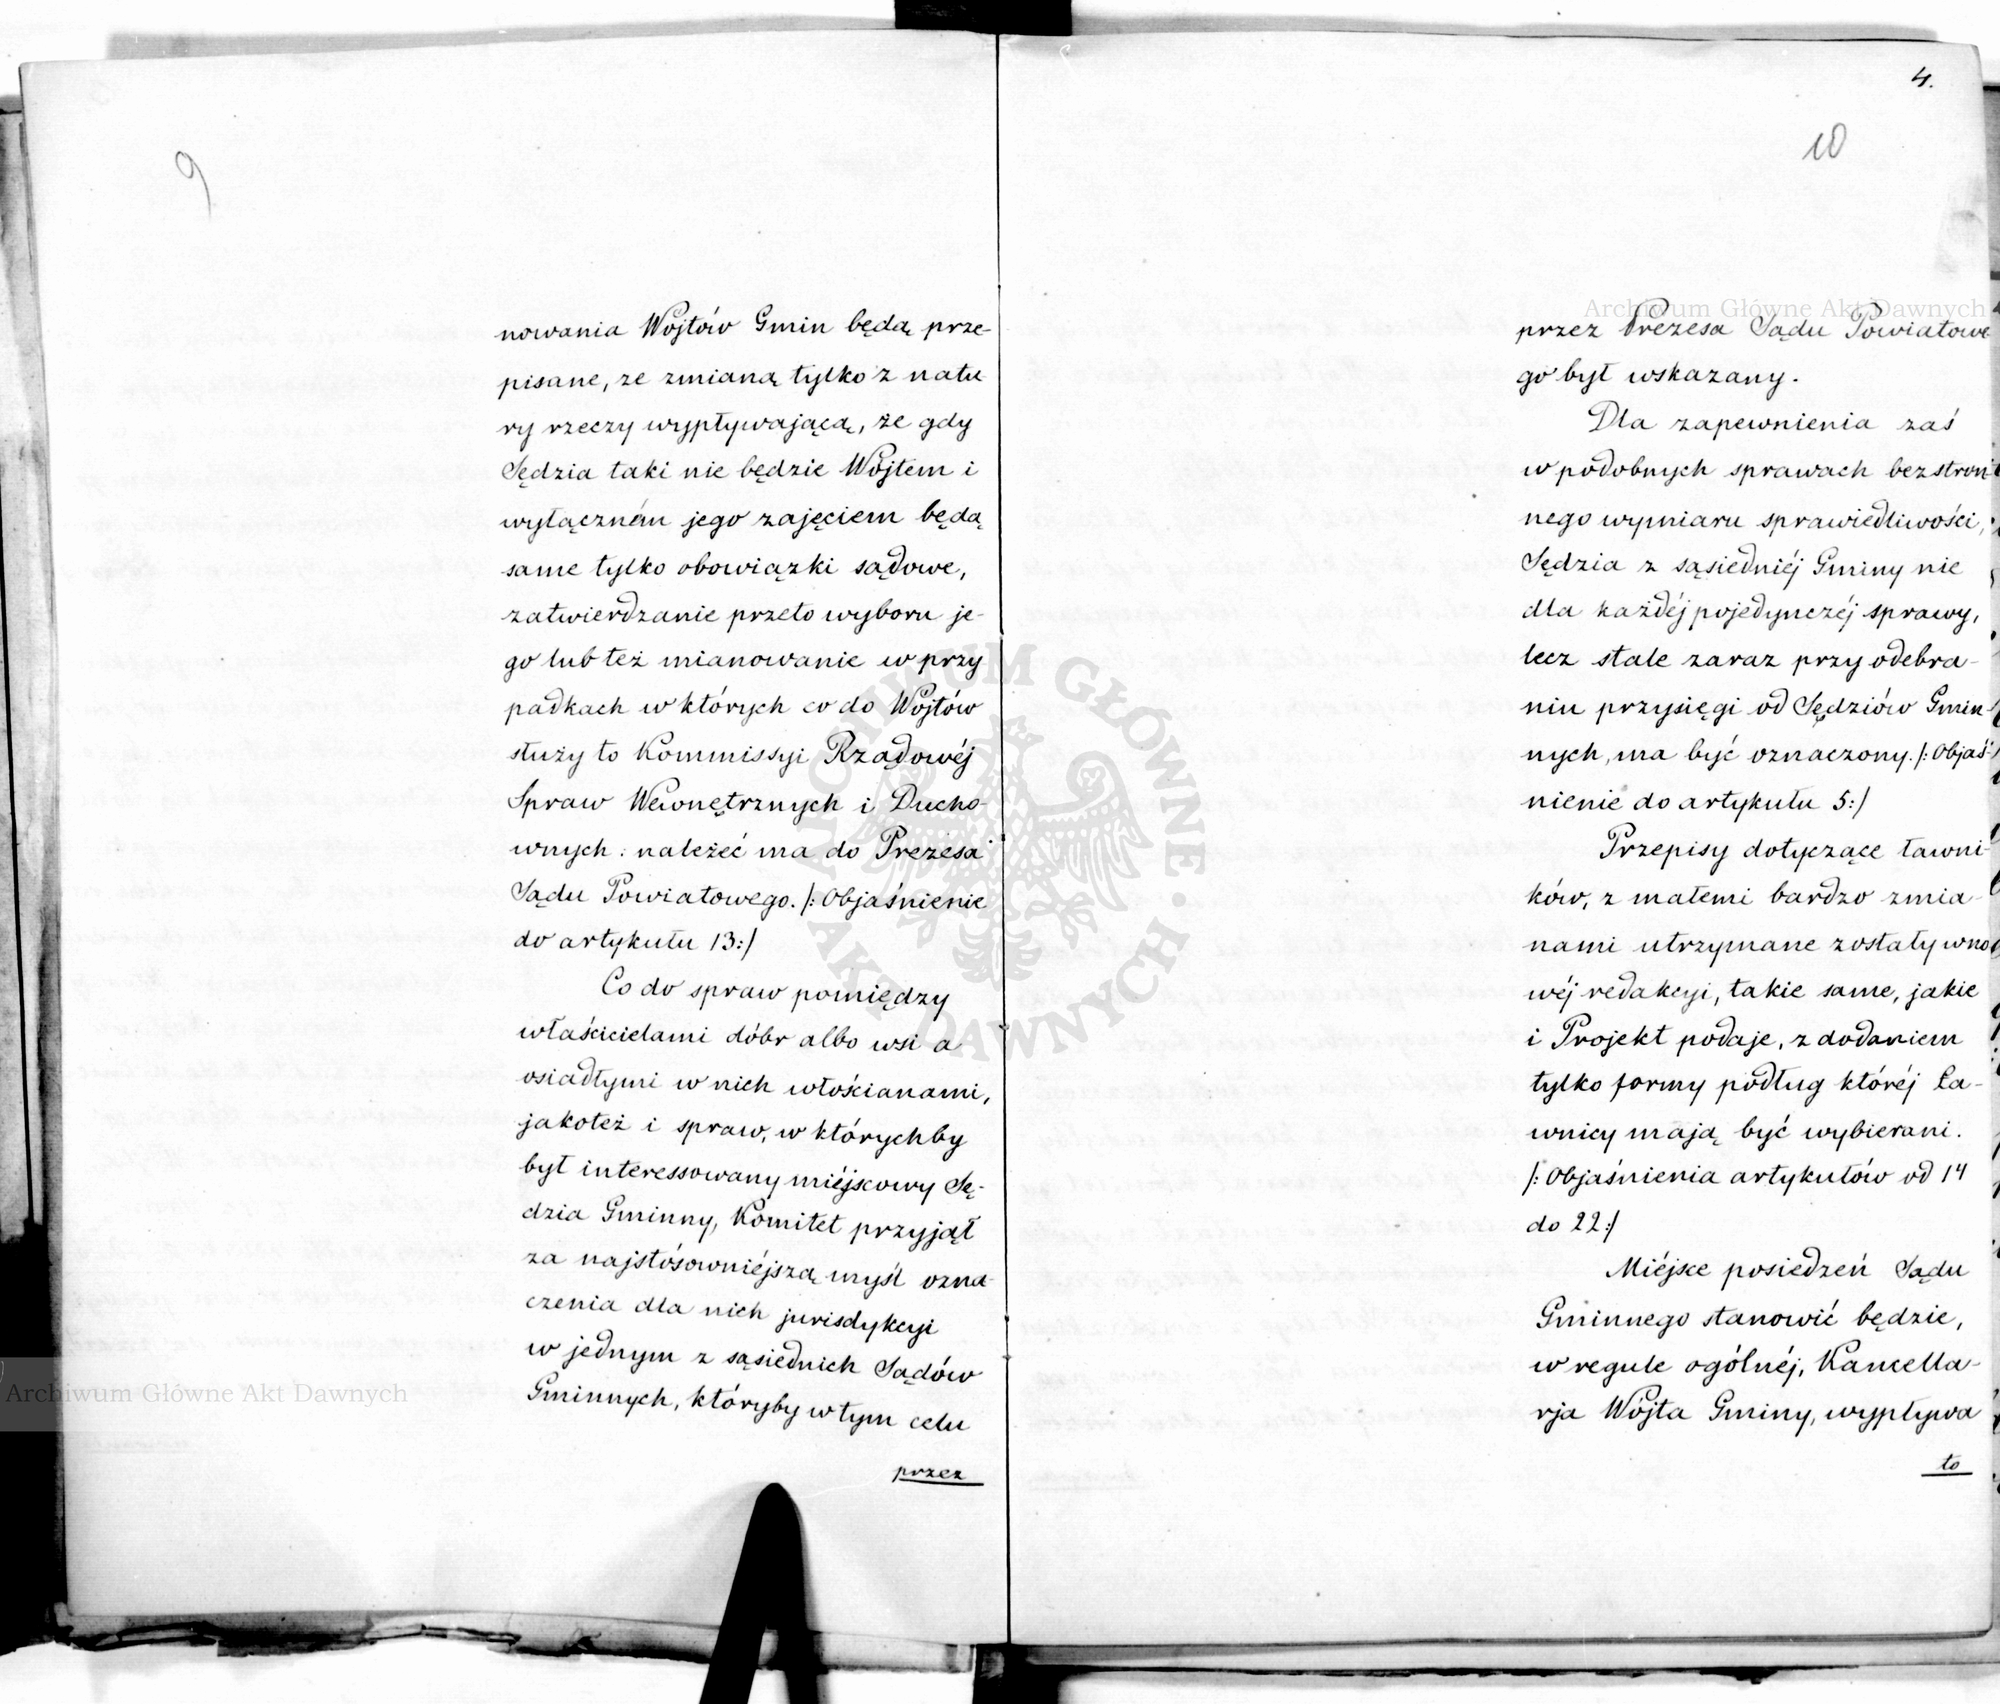 9
nowania Wójtów Gmin będą prze-
pisane, ze zmianą tylko z natu
ry rzeczy wypływającą, że gdy
Sędzia taki nie będzie Wójtem i
wyłączném jego zajęciem będą
same tylko obowiązki sądowe,
zatwierdzanie przeto wyboru je-
go lub też mianowanie w przy
padkach w których co do Wójtów
służy to Kommissyi Rządowéj
Spraw Wewnętrznych i Ducho-
wnych: należeć ma do Prezesa
Sądu Powiatowego. /: Objaśnienie
do artykułu 13:/
Co do spraw pomiędzy
właścicielami dóbr albo wsi a
osiadłymi w nich włościanami,
jakoteż i spraw, w którychby
był interessowany miéjscowy Sę-
dzia Gminny, Komitet przyjął
za najstósowniéjszą myśl ozna-
czenia dla nich jurisdykcyi
w jednym z sąsiednich Sądów
Gminnych, któryby w tym celu
przez
4.
10
przez Prezesa Sądu Powiatowe
go był wskazany.
Dla zapewnienia zaś
w podobnych sprawach bezstron
nego wymiaru sprawiedliwości,
Sędzia z sąsiedniéj Gminy nie
dla każdéj pojedynczéj sprawy,
lecz stale zaraz przy odebra-
niu przysięgi od Sędziów Gmin-
nych, ma być oznaczony. /: Objaś-
nienie do artykułu 5:/
Przepisy dotyczące ławni-
ków, z małemi bardzo zmia-
nami utrzymane zostały w no
wéj redakcyi, takie same, jakie
i Projekt podaje, z dodaniem
tylko formy podług któréj Ła-
wnicy mają być wybierani.
/: Objaśnienia artykułów od 14
do 22:/
Miéjsce posiedzeń Sądu
Gminnego stanowić będzie,
w regule ogólnéj, Kancella-
rja Wójta Gminy, wypływa
to
Archiwum Główne Akt Dawnych
Archiwum Główne Akt Dawnych
ARCHIWUM GŁÓWNE AKT DAWNYCH